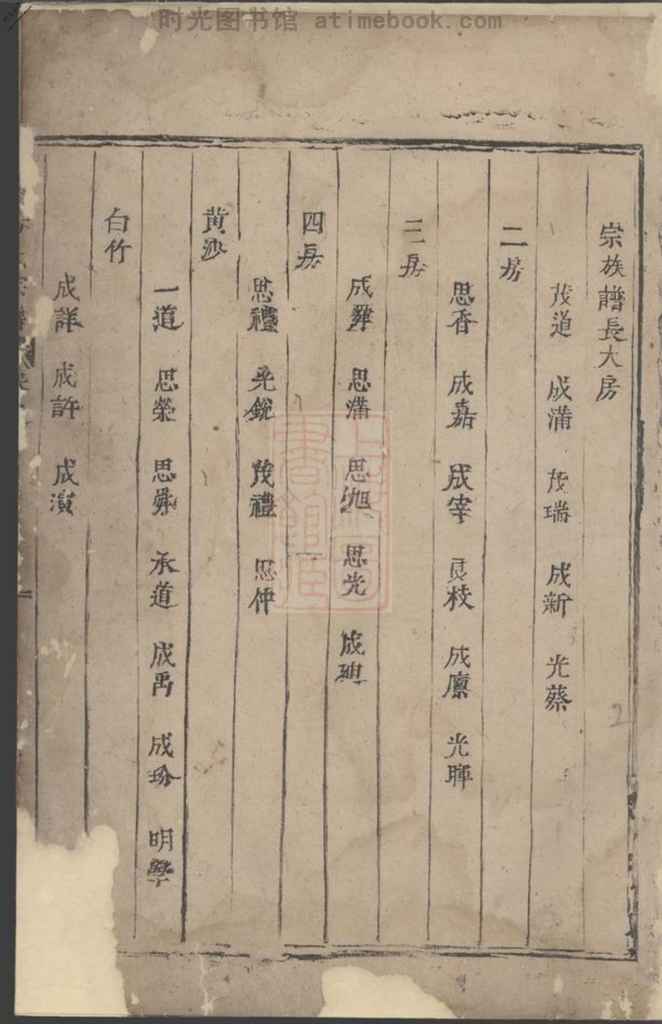 时光图书馆 - atimebook.com
宗族譜長大房
茂道 成滿 茂瑞 成新 光蔡
二房
思香 成嘉 成宰 良枝 成廪 光暉
三房
成舜 思滿 思旭 思光 成
四房
思禮 光銳 茂禮 思仲
黄沙
一道 思榮 思舜 承道 成禹 成玢 明學
白竹
成詳 成許 成濱